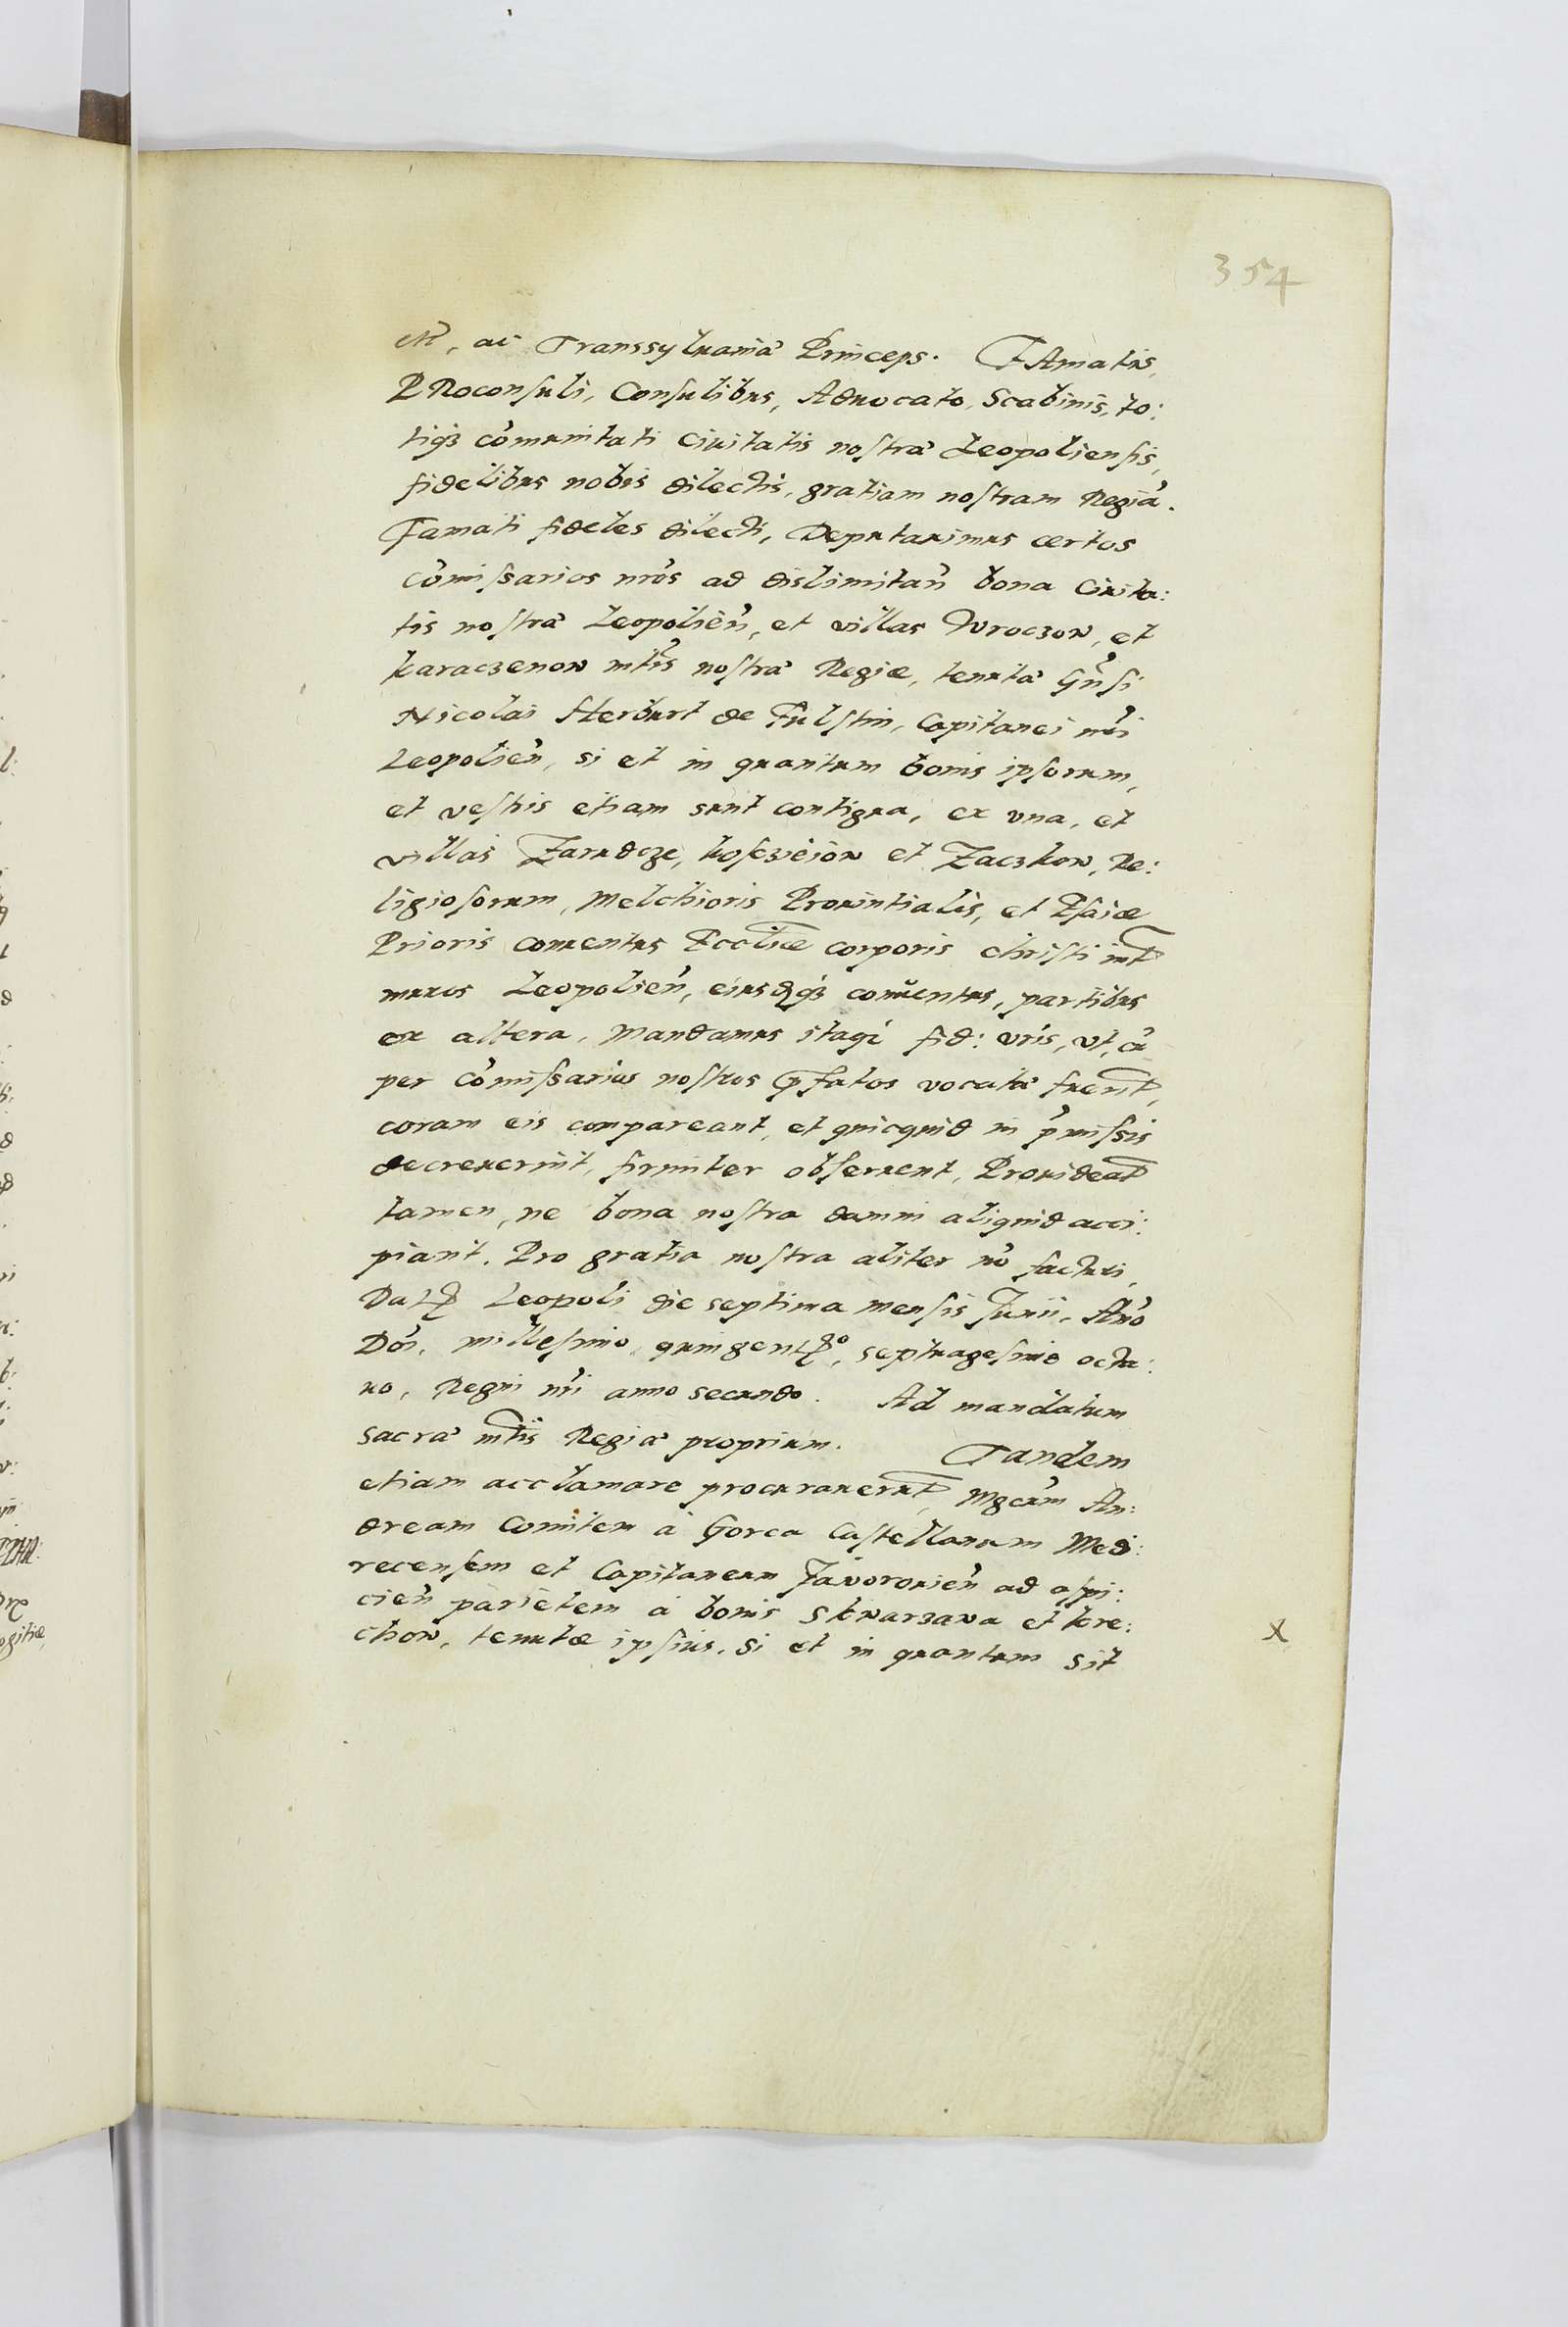 354
etc, ac Transsyluaniæ Princeps. FAmatis,
PRoconsuli, Consulibus, Aduocato, Scabinis, to:
tiq₃ cõmunitati Ciuitatis nostræ Leopoliensis,
fidelibus nobis dilectis, gratiam nostram Regiã.
Famati fideles dilecti, Deputauimus certos
cõmissarios nrõs ad dislimitañ bona Ciuita:
tis nostræ Leopolieñ, et villas Wroczow, et
karaczenow mtis nostræ Regiæ, tenutæ Gnsi
Nicolai Herburt de Fulstin, Capitanei nri
Leopolieñ, si et in quantum bonis ipsorum,
et vestris etiam sunt contigua, ex vna, et
villas Zarudcze, kosczieiow et Zaczkow, Re:
ligiosorum, Melchioris Prouintialis, et Esaiæ
Prioris conuentus Eccliæ corporis christi intra
muros Leopolieñ, eiusdemq₃ conuentus, partibus
ex altera, Mandamus itaq₃ fid: vris, vt, cũ
per cõmissarios nostros p̃fatos vocatæ fuerint,
coram eis compareant, et quicquid in p̃missis
decreuerint, firmiter obseruent, Prouideant
tamen, ne bona nostra damni aliquid acci:
piant. Pro gratia nostra aliter nõ facturi,
Datum Leopoli die septima mensis Junii, Anõ
Dõi, millesimo, quingentmo, septuagesimo octa:
uo, Regni nri anno secundo. Ad mandatum
sacræ mtis Regiæ proprium. Tandem
etiam acclamare procurauerunt, Mgcũm An:
dream Comitem à Gorca Castellanum Med:
recensem et Capitaneum Jaworouieñ ad aspi:
cieñ parietem à bonis Skwarzawa et kre:
chow, tenutæ ipsius, si et in quantum sit
x